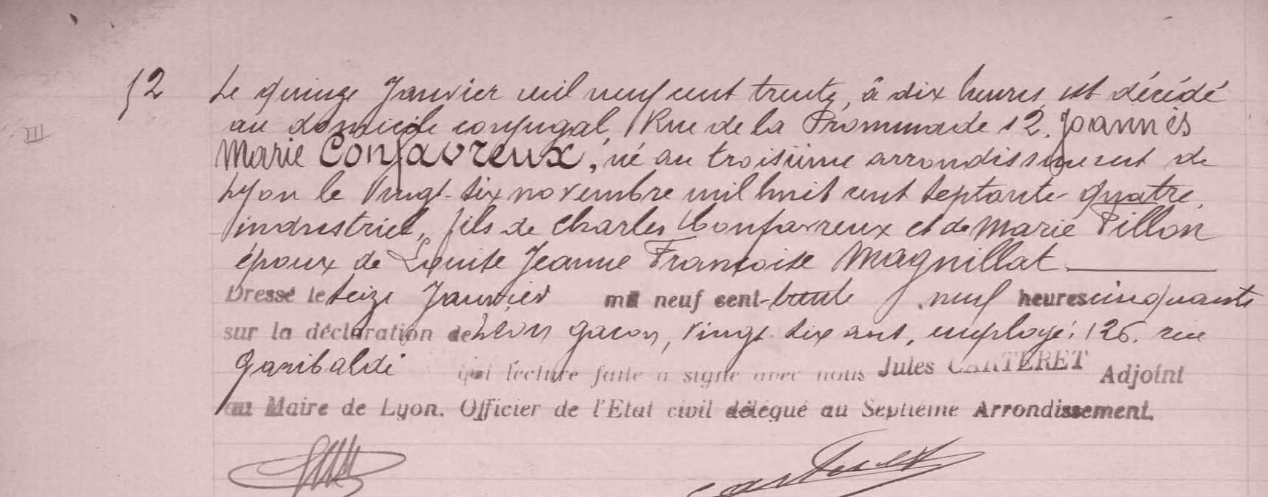 52 Le quinze Janvier mil neuf cent trente, à dix heures est décédé
III au domicile conjugal, Rue de la Promenade 12, Joannès
Marie Confavreux, né au troisième arrondissement de
Lyon le vingt-six novembre mil huit cent septante-quatre,
industriel, fils de Charles Confavreux et de Marie Pillon
époux de Louise Jeanne Françoise Magnillat
Dressé le seize Janvier mil neuf cent-trente neuf heures cinquante
sur la déclaration de Léon Gacon, vingt-six ans, employé, 126, rue
Garibaldi qui lecture faite a signé avec nous Jules CARTERET Adjoint
au Maire de Lyon. Officier de l'Etat civil délégué au Septième Arrondissement.